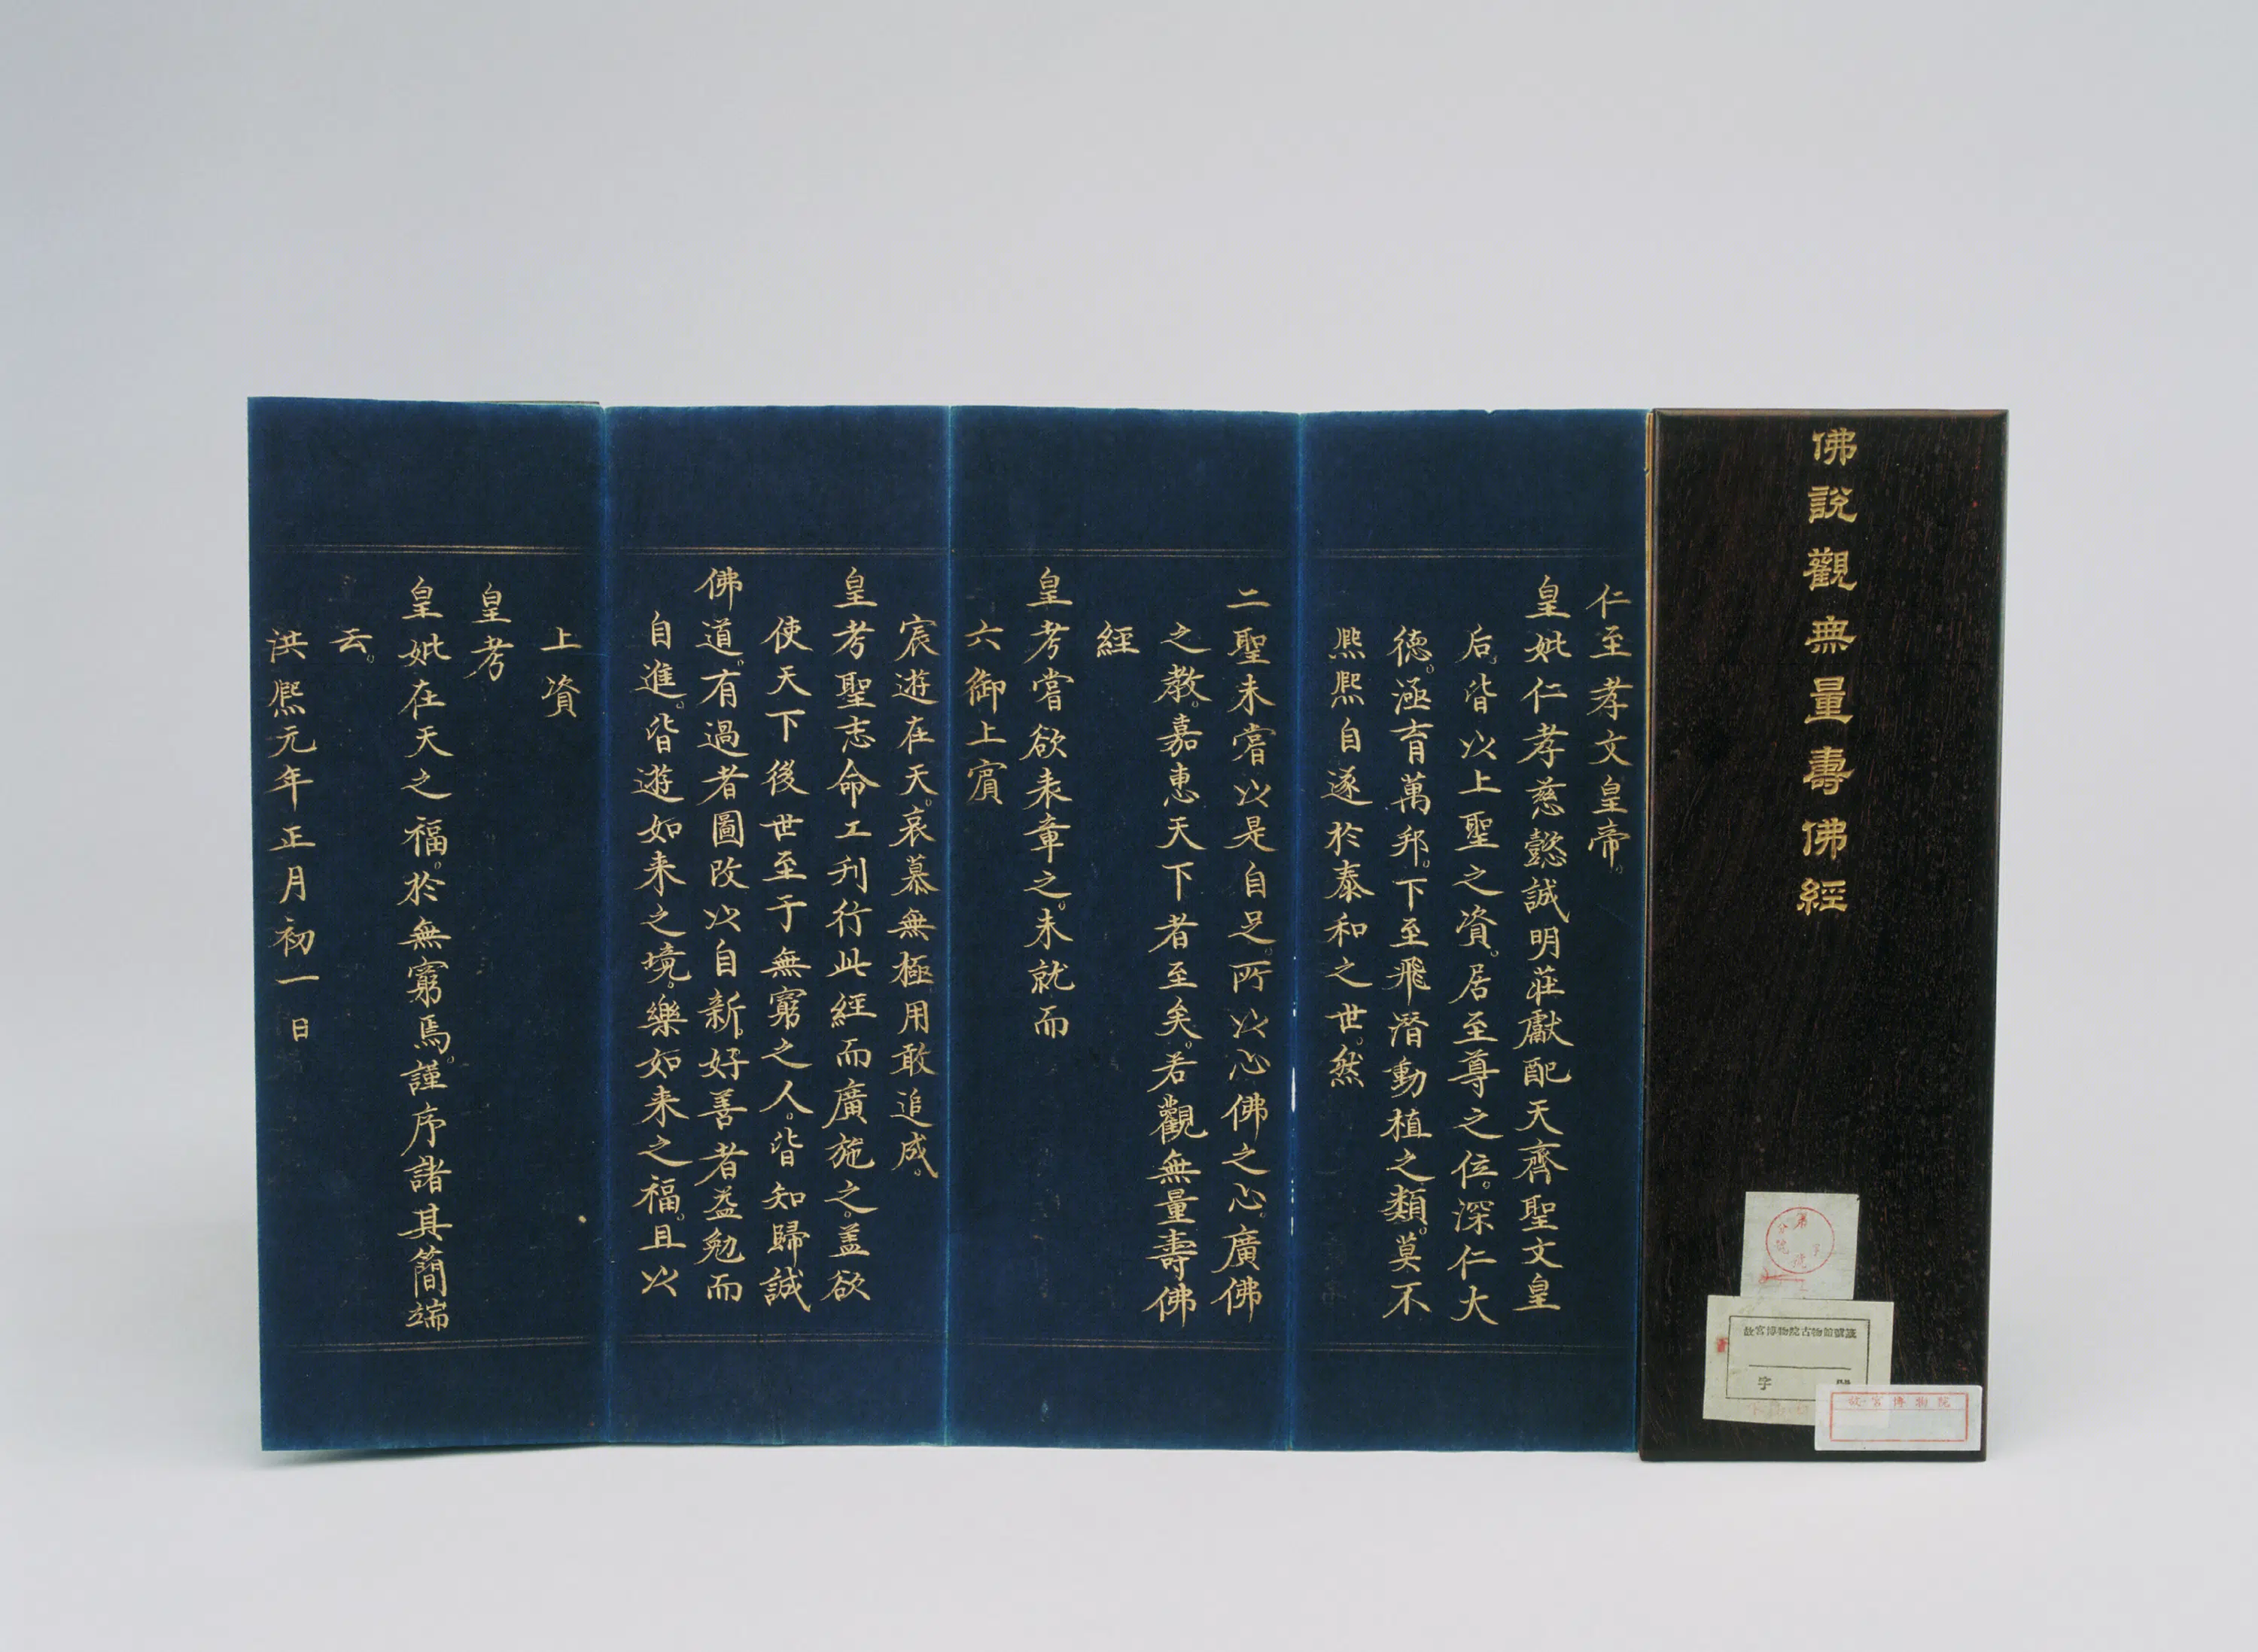 佛說觀無量壽佛經
仁至孝文皇帝。
皇妣仁孝慈懿誠明莊獻配天齊聖文皇
后。皆以上聖之資。居至尊之位。深仁大
德。涵育萬邦。下至飛潛動植之類。莫不
熙熙自遂於泰和之世。然
二聖未嘗以是自足。所以心佛之心。廣佛
之教。嘉惠天下者至矣。若觀無量壽佛
經
皇考嘗欲表章之。未就而
六御上賓
宸遊在天。哀慕無極用敢追成。
皇考聖志命工刋行此經而廣施之。盖欲
使天下後世至于無窮之人。皆知歸誠
佛道。有過者圖改以自新。好善者益勉而
自進。皆遊如来之境。樂如来之福。且以
上資
皇考
皇妣在天之福。於無窮焉。謹序諸其簡端
云。
洪熙元年正月初一日
故宮博物院古物館號籤
字
故宮博物院